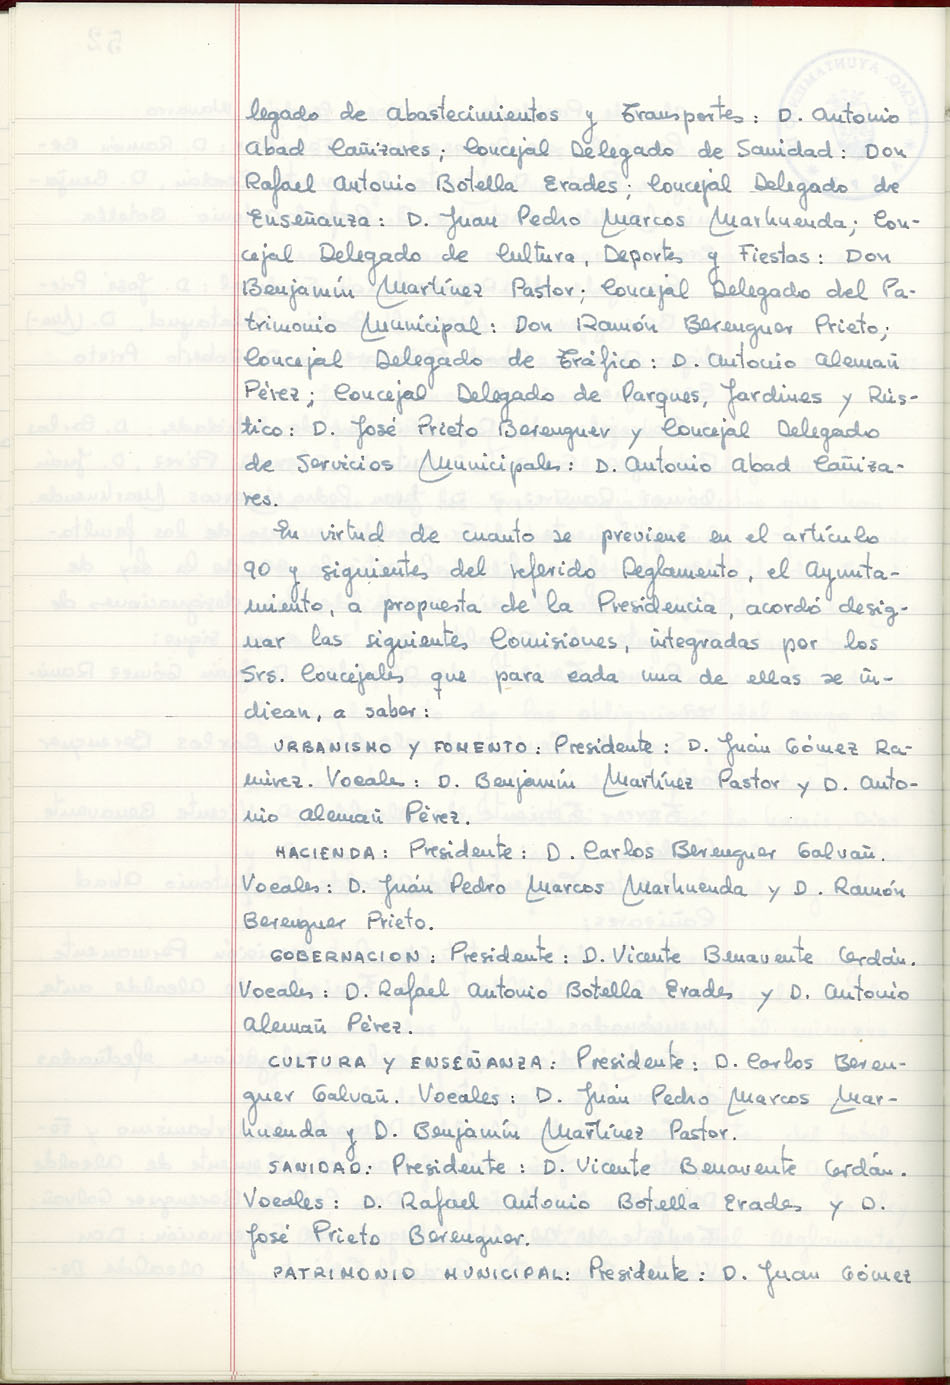 legado de Abastecimientos y Transportes: D. Antonio
Abad Cañizares; Concejal Delegado de Sanidad: Don
Rafael Antonio Botella Erades; Concejal Delegado de
Enseñanza: D. Juan Pedro Marcos Marhuenda; Con-
cejal Delegado de Cultura, Deportes y Fiestas: Don
Benjamín Martínez Pastor; Concejal Delegado del Pa-
trimonio Municipal: Don Ramón Berenguer Prieto;
Concejal Delegado de Tráfico: D. Antonio Alemañ
Pérez; Concejal Delegado de Parques, Jardines y Rús-
tico: D. José Prieto Berenguer y Concejal Delegado
de Servicios Municipales: D. Antonio Abad Cañiza-
res.
En virtud de cuanto se previene en el artículo
90 y siguientes del referido Reglamento, el Ayunta-
miento, a propuesta de la Presidencia, acordó desig-
nar las siguientes Comisiones, integradas por los
Srs. Concejales que para cada una de ellas se in-
dican, a saber:
URBANISMO Y FOMENTO: Presidente: D. Juan Gómez Ra-
mirez. Vocales: D. Benjamín Martínez Pastor y D. Anto-
nio Alemañ Pérez.
HACIENDA: Presidente: D. Carlos Berenguer Galvañ.
Vocales: D. Juan Pedro Marcos Marhuenda y D. Ramón
Berenguer Prieto.
GOBERNACION: Presidente: D. Vicente Benavente Cerdán.
Vocales: D. Rafael Antonio Botella Erades y D. Antonio
Alemañ Pérez.
CULTURA Y ENSEÑANZA: Presidente: D. Carlos Beren-
guer Galvañ. Vocales: D. Juan Pedro Marcos Mar-
huenda y D. Benjamín Martínez Pastor.
SANIDAD: Presidente: D. Vicente Benavente Cerdán.
Vocales: D. Rafael Antonio Botella Erades y D.
José Prieto Berenguer.
PATRIMONIO MUNICIPAL: Presidente: D. Juan Gómez